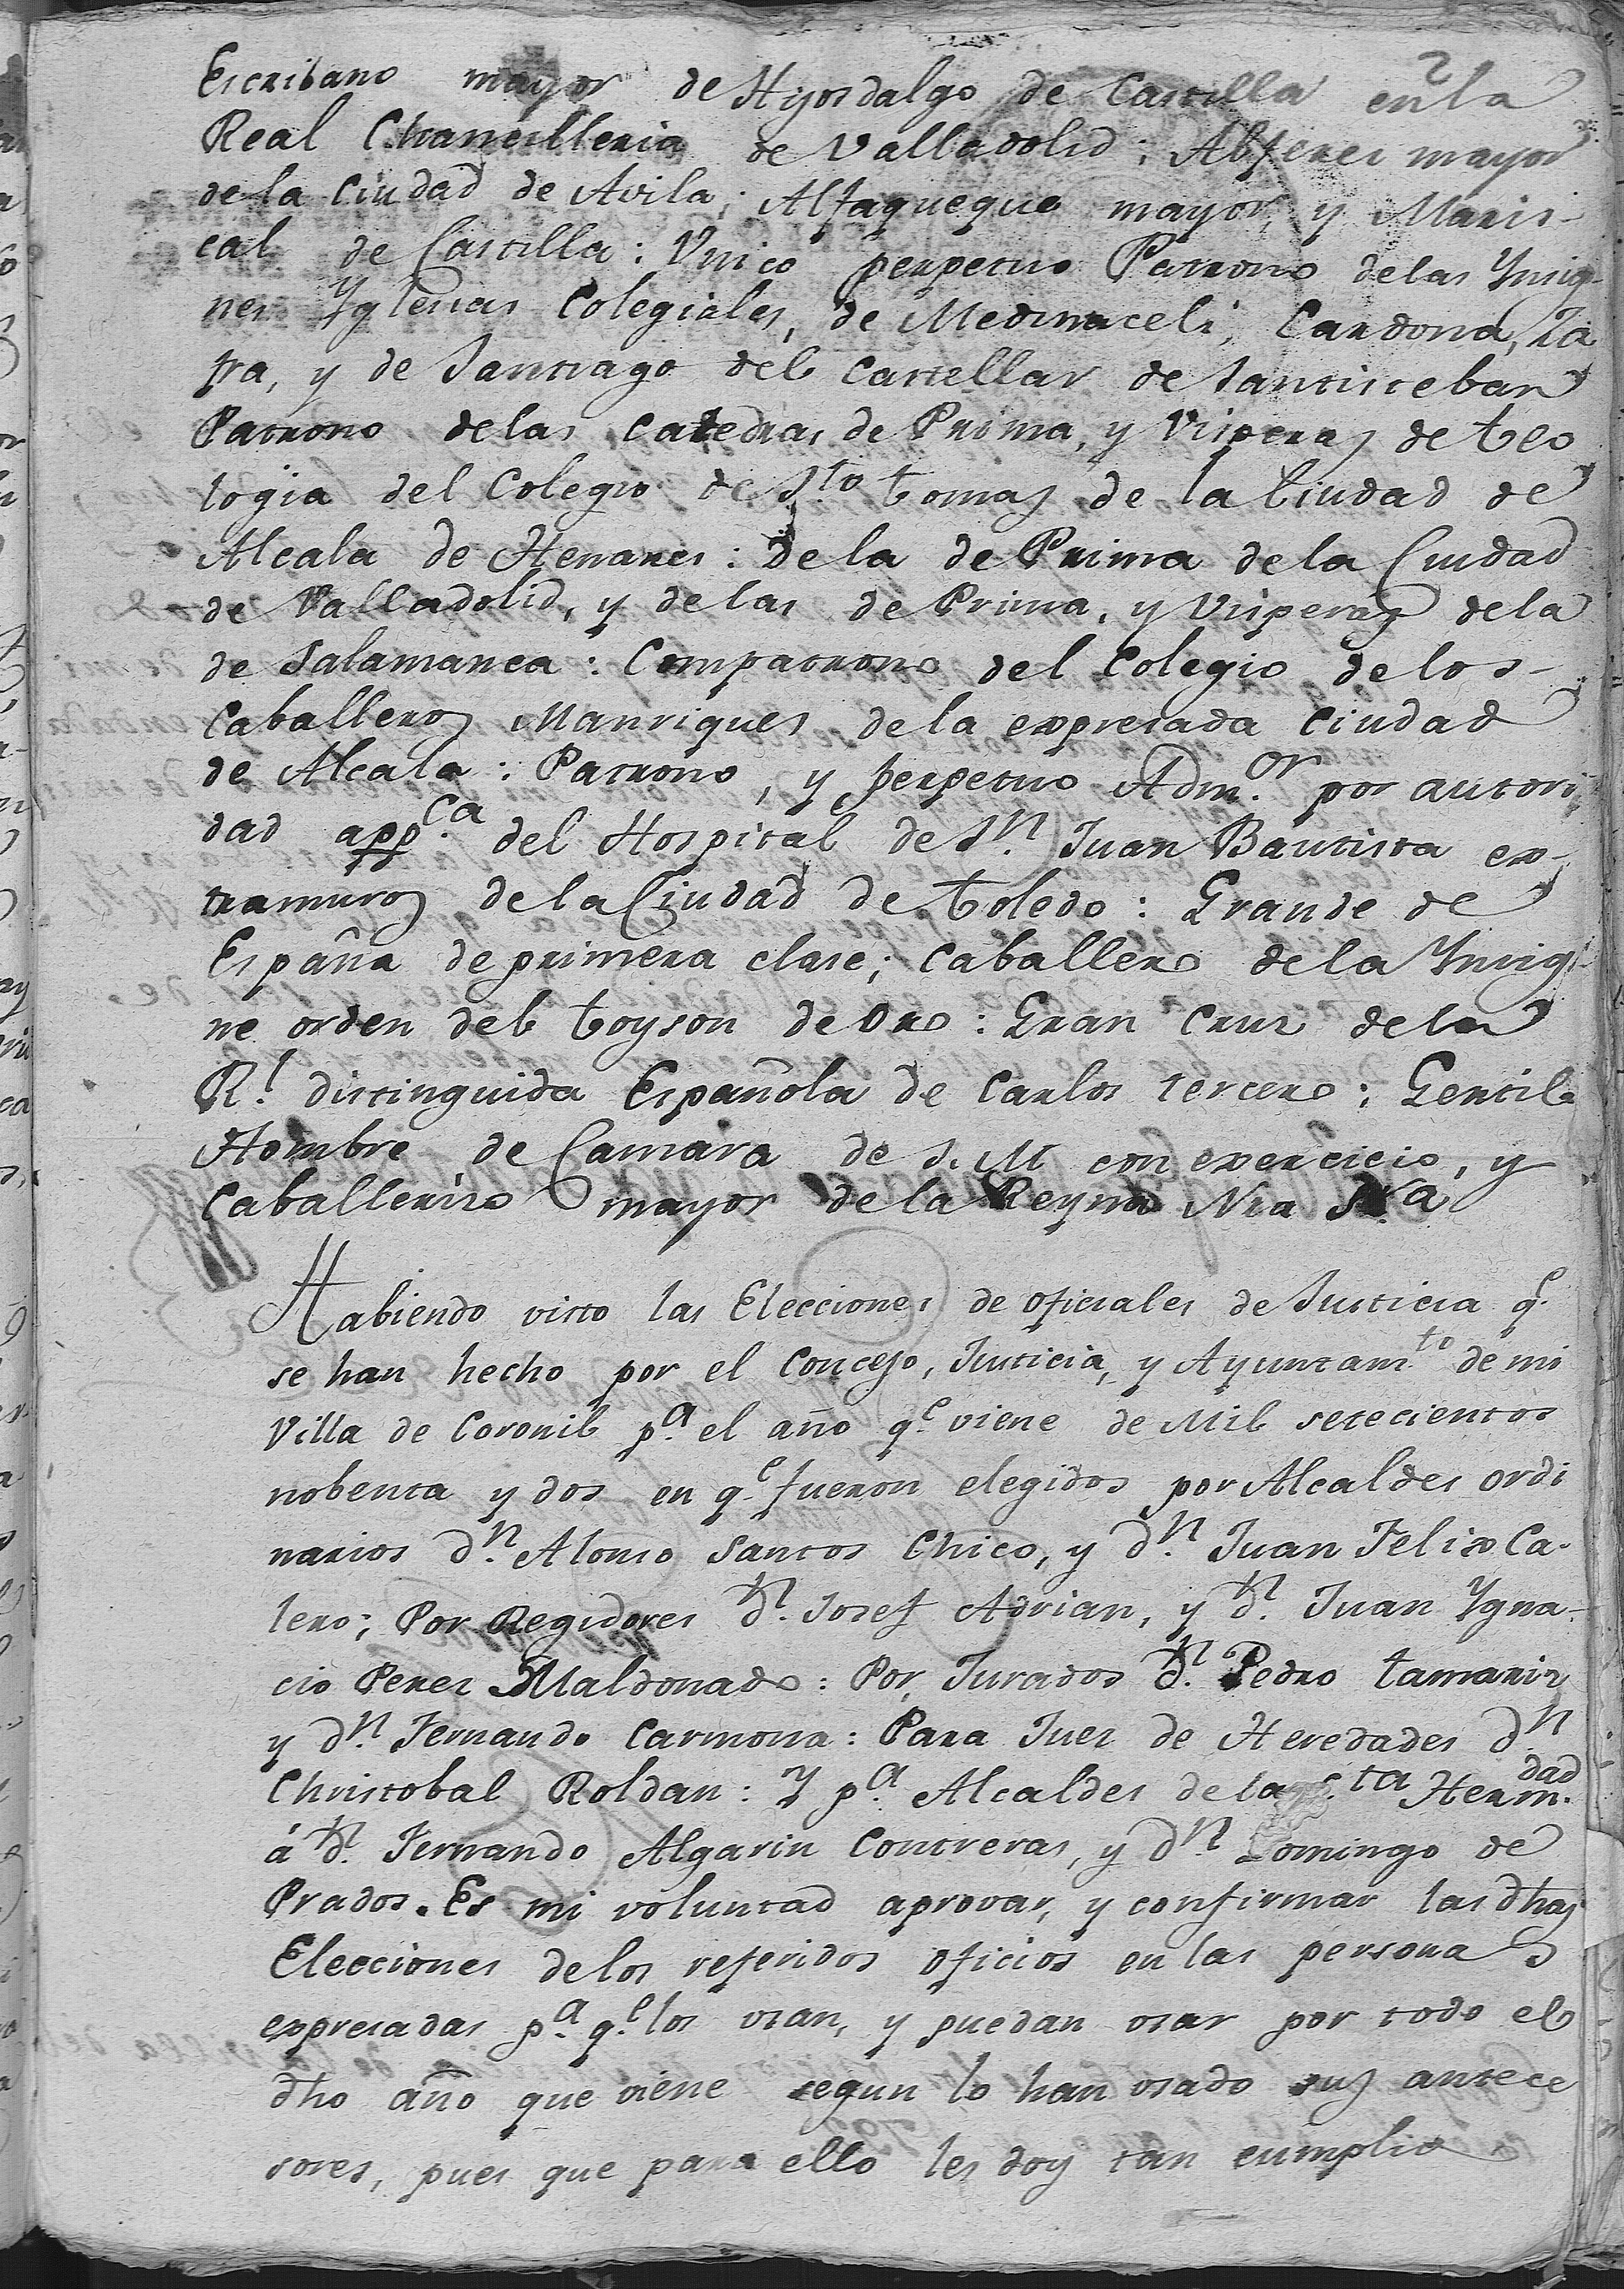 2
Escribano mayor de Hijosdalgo de Castilla en la
Real Chancilleria de Valladolid: Alferez mayor
de la Ciudad de Avila; Alfaqueque mayor, y Maris-
cal de Castilla: Vnico perpetuo Patrono de las Ynsig-
nes Yglesias Colegiales, de Medinaceli, Cardona, Za
fra, y de Santiago del Castellar de Santisteban
Patrono de las Catedras de Prima, y Visperas de teo
logia del Colegio de Sto tomas de la Ciudad de
Alcala de Henares: de la de Prima de la Ciudad
de Valladolid, y de las de Prima, y Visperas de la
de Salamanca: Compatrono del Colegio de los
Caballeros Manriques de la expresada Ciudad
de Alcala: Patrono, y perpetuo Adm.or por autori
dad app.ca del Hospital de Sn. Juan Bautista ex-
tramuros de la Ciudad de toledo: Grande de
España de primera clase; Caballero de la Ynsig-
ne orden del toyson de Oro: Gran Cruz de la
Rl. distinguida Española de Carlos tercero: Gentil
Hombre de Camara de S. M con exercicio, y
Caballerizo mayor de la Reyna Nra Sra.
Habiendo visto las Elecciones de oficiales de Justicia qe.
se han hecho por el Concejo, Justicia, y Ayuntamto de mi
Villa de Coronil pa. el año qe. viene de Mil setecientos
nobenta y dos en qe. fueron elegidos por Alcaldes ordi
narios dn. Alonso Santos Chico, y dn. Juan Felix Ca-
lero; Por Regidores dn. Josef Adrian, y dn. Juan Ygna-
cio Perez Maldonado: Por Jurados dn. Pedro tamariz
y dn. Fernando Carmona: Para Juez de Heredades dn.
Christobal Roldan: Y pa. Alcaldes de la Sta. Hermdad.
á dn. Fernando Algarin Contreras, y dn. Domingo de
Prados. Es mi voluntad aprovar, y confirmar las dhas
Elecciones de los referidos oficios en las personas
expresadas pa. qe. los usan, y puedan usar por todo el
dho año que viene segun lo han usado sus antece
sores, pues que para ello les doy tan cumplido